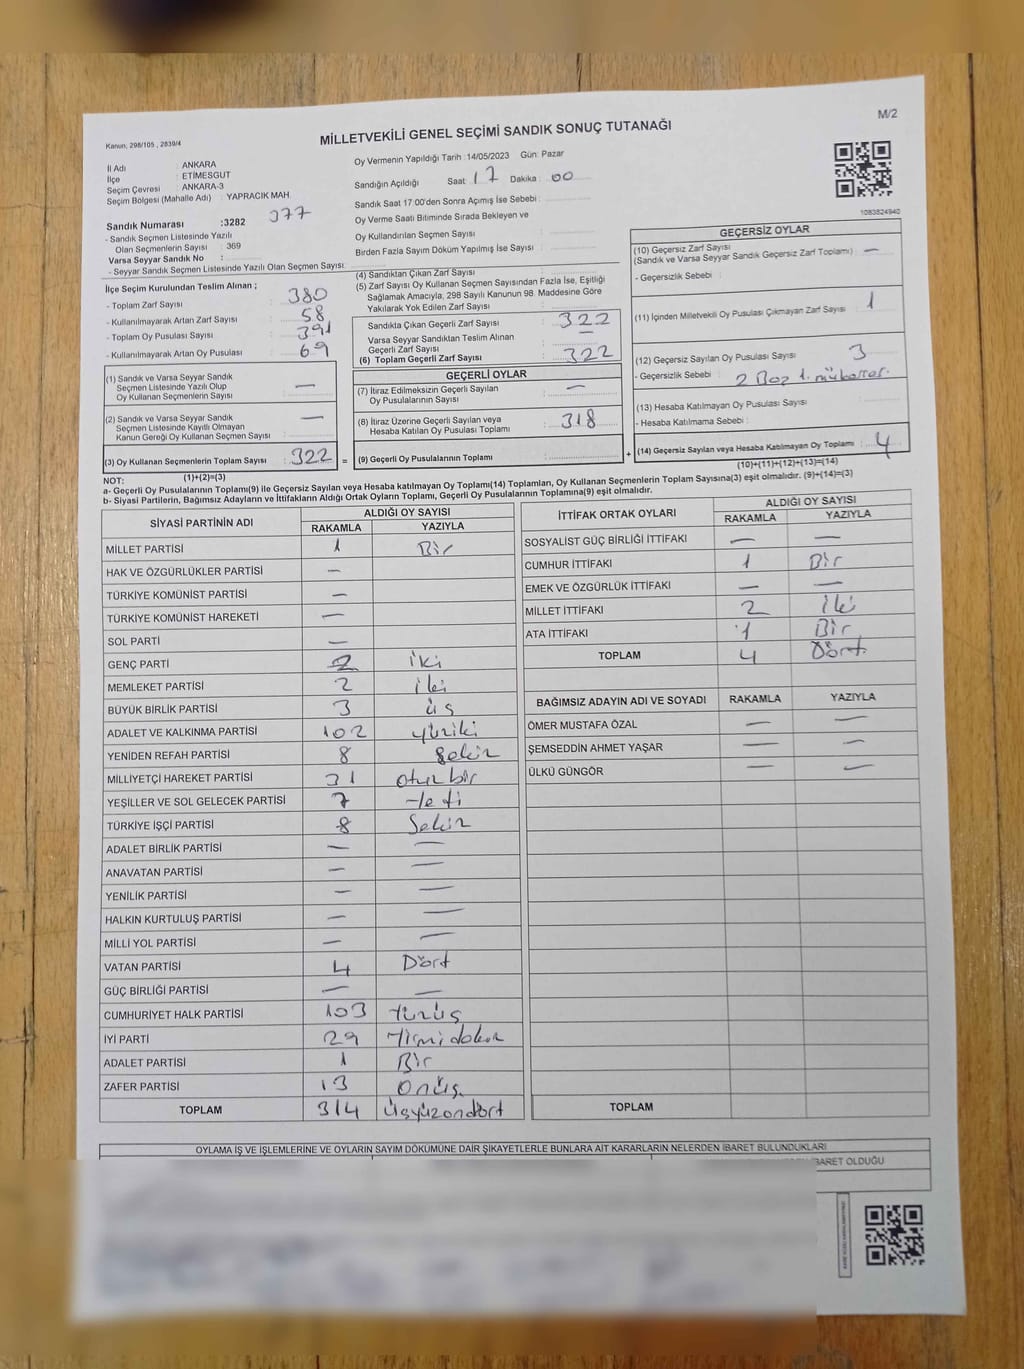 M/2
Kanun, 298/105 , 2839/4
MİLLETVEKİLİ GENEL SEÇİMİ SANDIK SONUÇ TUTANAĞI
İl Adı : ANKARA
İlçe : ETİMESGUT
Seçim Çevresi : ANKARA-3
Seçim Bölgesi (Mahalle Adı) : YAPRACIK MAH.
Sandık Numarası :3282 377
- Sandık Seçmen Listesinde Yazılı
Olan Seçmenlerin Sayısı : 369
Varsa Seyyar Sandık No :
- Seyyar Sandık Seçmen Listesinde Yazılı Olan Seçmen Sayısı:
Oy Vermenin Yapıldığı Tarih :14/05/2023 Gün: Pazar
Sandığın Açıldığı Saat : 17 Dakika : 00
Sandık Saat 17.00'den Sonra Açımış İse Sebebi :
Oy Verme Saati Bitiminde Sırada Bekleyen ve
Oy Kullandırılan Seçmen Sayısı
Birden Fazla Sayım Döküm Yapılmış İse Sayısı :
1083824940
İlçe Seçim Kurulundan Teslim Alınan ;
- Toplam Zarf Sayısı : 380
- Kullanılmayarak Artan Zarf Sayısı : 58
- Toplam Oy Pusulası Sayısı : 391
- Kullanılmayarak Artan Oy Pusulası : 69
(1) Sandık ve Varsa Seyyar Sandık
Seçmen Listesinde Yazılı Olup
Oy Kullanan Seçmenlerin Sayısı : —
(2) Sandık ve Varsa Seyyar Sandık
Seçmen Listesinde Kayıtlı Olmayan
Kanun Gereği Oy Kullanan Seçmen Sayısı : —
(3) Oy Kullanan Seçmenlerin Toplam Sayısı : 322
(1)+(2)=(3)
(4) Sandıktan Çıkan Zarf Sayısı
(5) Zarf Sayısı Oy Kullanan Seçmen Sayısından Fazla İse, Eşitliği
Sağlamak Amacıyla, 298 Sayılı Kanunun 98. Maddesine Göre
Yakılarak Yok Edilen Zarf Sayısı
Sandıkta Çıkan Geçerli Zarf Sayısı : 322
Varsa Seyyar Sandıktan Teslim Alınan
Geçerli Zarf Sayısı : —
(6) Toplam Geçerli Zarf Sayısı : 322
GEÇERLİ OYLAR
(7) İtiraz Edilmeksizin Geçerli Sayılan
Oy Pusulalarının Sayısı : —
(8) İtiraz Üzerine Geçerli Sayılan veya
Hesaba Katılan Oy Pusulası Toplamı : 318
= (9) Geçerli Oy Pusulalarının Toplamı :
GEÇERSİZ OYLAR
(10) Geçersiz Zarf Sayısı
(Sandık ve Varsa Seyyar Sandık Geçersiz Zarf Toplamı) : —
- Geçersizlik Sebebi :
(11) İçinden Milletvekili Oy Pusulası Çıkmayan Zarf Sayısı : 1
(12) Geçersiz Sayılan Oy Pusulası Sayısı : 3
- Geçersizlik Sebebi : 2 Boş 1. mükerrer.
(13) Hesaba Katılmayan Oy Pusulası Sayısı :
- Hesaba Katılmama Sebebi :
+ (14) Geçersiz Sayılan veya Hesaba Katılmayan Oy Toplamı : 4
(10)+(11)+(12)+(13)=(14)
NOT:
a- Geçerli Oy Pusulalarının Toplamı(9) ile Geçersiz Sayılan veya Hesaba katılmayan Oy Toplamı(14) Toplamları, Oy Kullanan Seçmenlerin Toplam Sayısına(3) eşit olmalıdır. (9)+(14)=(3)
b- Siyasi Partilerin, Bağımsız Adayların ve İttifakların Aldığı Ortak Oyların Toplamı, Geçerli Oy Pusulalarının Toplamına(9) eşit olmalıdır.
SİYASİ PARTİNİN ADI ALDIĞI OY SAYISI
RAKAMLA YAZIYLA
MİLLET PARTİSİ 1 Bir
HAK VE ÖZGÜRLÜKLER PARTİSİ —
TÜRKİYE KOMÜNİST PARTİSİ —
TÜRKİYE KOMÜNİST HAREKETİ —
SOL PARTİ —
GENÇ PARTİ 2 iki
MEMLEKET PARTİSİ 2 iki
BÜYÜK BİRLİK PARTİSİ 3 üç
ADALET VE KALKINMA PARTİSİ 102 yüziki
YENİDEN REFAH PARTİSİ 8 Sekiz
MİLLİYETÇİ HAREKET PARTİSİ 31 otuzbir
YEŞİLLER VE SOL GELECEK PARTİSİ 7 Yedi
TÜRKİYE İŞÇİ PARTİSİ 8 Sekiz
ADALET BİRLİK PARTİSİ — —
ANAVATAN PARTİSİ — —
YENİLİK PARTİSİ — —
HALKIN KURTULUŞ PARTİSİ — —
MİLLİ YOL PARTİSİ — —
VATAN PARTİSİ 4 Dört
GÜÇ BİRLİĞİ PARTİSİ — —
CUMHURİYET HALK PARTİSİ 103 Yüzüç
İYİ PARTİ 29 Yirmidokuz
ADALET PARTİSİ 1 Bir
ZAFER PARTİSİ 13 Onüç.
TOPLAM 314 Üçyüzondört
İTTİFAK ORTAK OYLARI ALDIĞI OY SAYISI
RAKAMLA YAZIYLA
SOSYALİST GÜÇ BİRLİĞİ İTTİFAKI — —
CUMHUR İTTİFAKI 1 Bir
EMEK VE ÖZGÜRLÜK İTTİFAKI — —
MİLLET İTTİFAKI 2 İki
ATA İTTİFAKI 1 Bir
TOPLAM 4 Dört.
BAĞIMSIZ ADAYIN ADI VE SOYADI RAKAMLA YAZIYLA
ÖMER MUSTAFA ÖZAL — —
ŞEMSEDDİN AHMET YAŞAR — —
ÜLKÜ GÜNGÖR — —
TOPLAM
OYLAMA İŞ VE İŞLEMLERİNE VE OYLARIN SAYIM DÖKÜMÜNE DAİR ŞİKAYETLERLE BUNLARA AİT KARARLARIN NELERDEN İBARET BULUNDUKLARI
BARET OLDUĞU